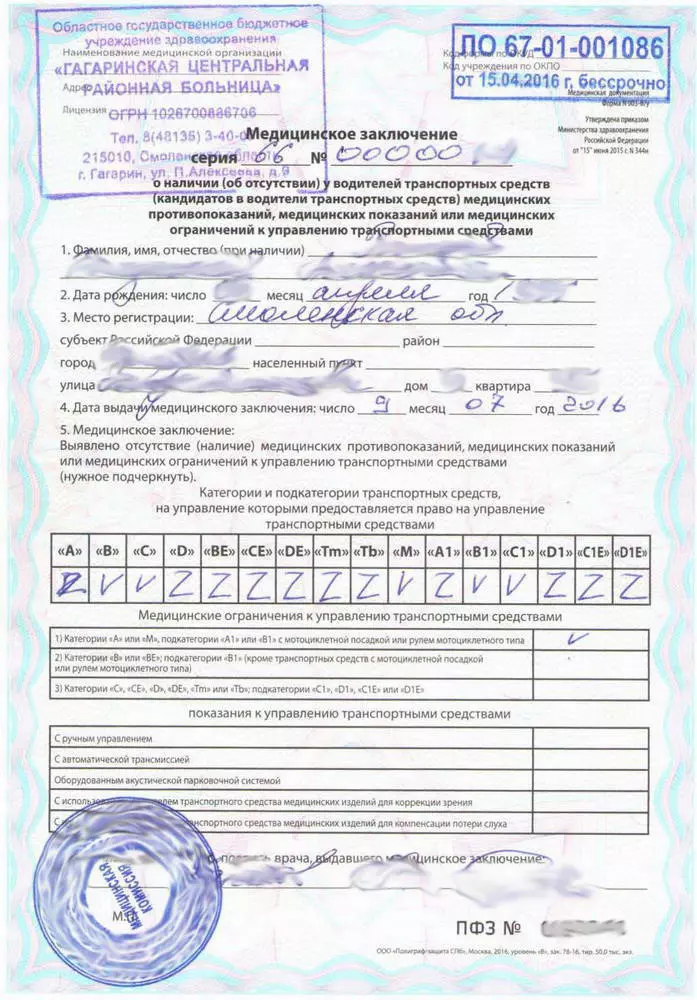 Областное государственное бюджетное
учреждение здравоохранения
Наименование медицинской организации
«ГАГАРИНСКАЯ ЦЕНТРАЛЬНАЯ
Адрес РАЙОННАЯ БОЛЬНИЦА»
Лицензия ОГРН 1026700886706
Тел. 8(48135) 3-40-
215010, Смоленская область
г. Гагарин, ул. П.Алексеева, д.9
Код формы по ОКУД
Код учреждения по ОКПО
ЛО 67-01-001086
от 15.04.2016 г. бессрочно
Медицинская документация
Форма N 003-В/у
Утверждена приказом
Министерства здравоохранения
Российской Федерации
от "15" июня 2015 г. N 344н
Медицинское заключение
серия 66 № 00000
о наличии (об отсутствии) у водителей транспортных средств
(кандидатов в водители транспортных средств) медицинских
противопоказаний, медицинских показаний или медицинских
ограничений к управлению транспортными средствами
1. Фамилия, имя, отчество (при наличии)
2. Дата рождения: число месяц апреля год
3. Место регистрации: Смоленская обл.
субъект Российской Федерации район
город населенный пункт
улица дом квартира
4. Дата выдачи медицинского заключения: число 9 месяц 07 год 2016
5. Медицинское заключение:
Выявлено отсутствие (наличие) медицинских противопоказаний, медицинских показаний
или медицинских ограничений к управлению транспортными средствами
(нужное подчеркнуть).
Категории и подкатегории транспортных средств,
на управление которыми предоставляется право на управление
транспортными средствами
«A» «B» «C» «D» «BE» «CE» «DE» «Tm» «Tb» «M» «A1» «B1» «C1» «D1» «C1E» «D1E»
Z V V Z Z Z Z Z Z V Z V V Z Z Z
Медицинские ограничения к управлению транспортными средствами
1) Категории «А» или «М», подкатегории «А1» или «В1» с мотоциклетной посадкой или рулем мотоциклетного типа V
2) Категории «В» или «ВЕ»; подкатегории «В1» (кроме транспортных средств с мотоциклетной посадкой
или рулем мотоциклетного типа)
3) Категории «С», «СЕ», «D», «DE», «Tm» или «Tb»; подкатегории «С1», «D1», «C1E» или «D1E»
показания к управлению транспортными средствами
С ручным управлением
С автоматической трансмиссией
Оборудованным акустической парковочной системой
С транспортного средства медицинских изделий для коррекции зрения
С транспортного средства медицинских изделий для компенсации потери слуха
врача, выдавшего медицинское заключение:
МЕДИЦИНСКАЯ
КОМИССИЯ
М.П.
ПФЗ №
ООО «Полиграф-защита СПб», Москва, 2016, уровень «В», зак. 76-16, тир. 50,0 тыс. экз.